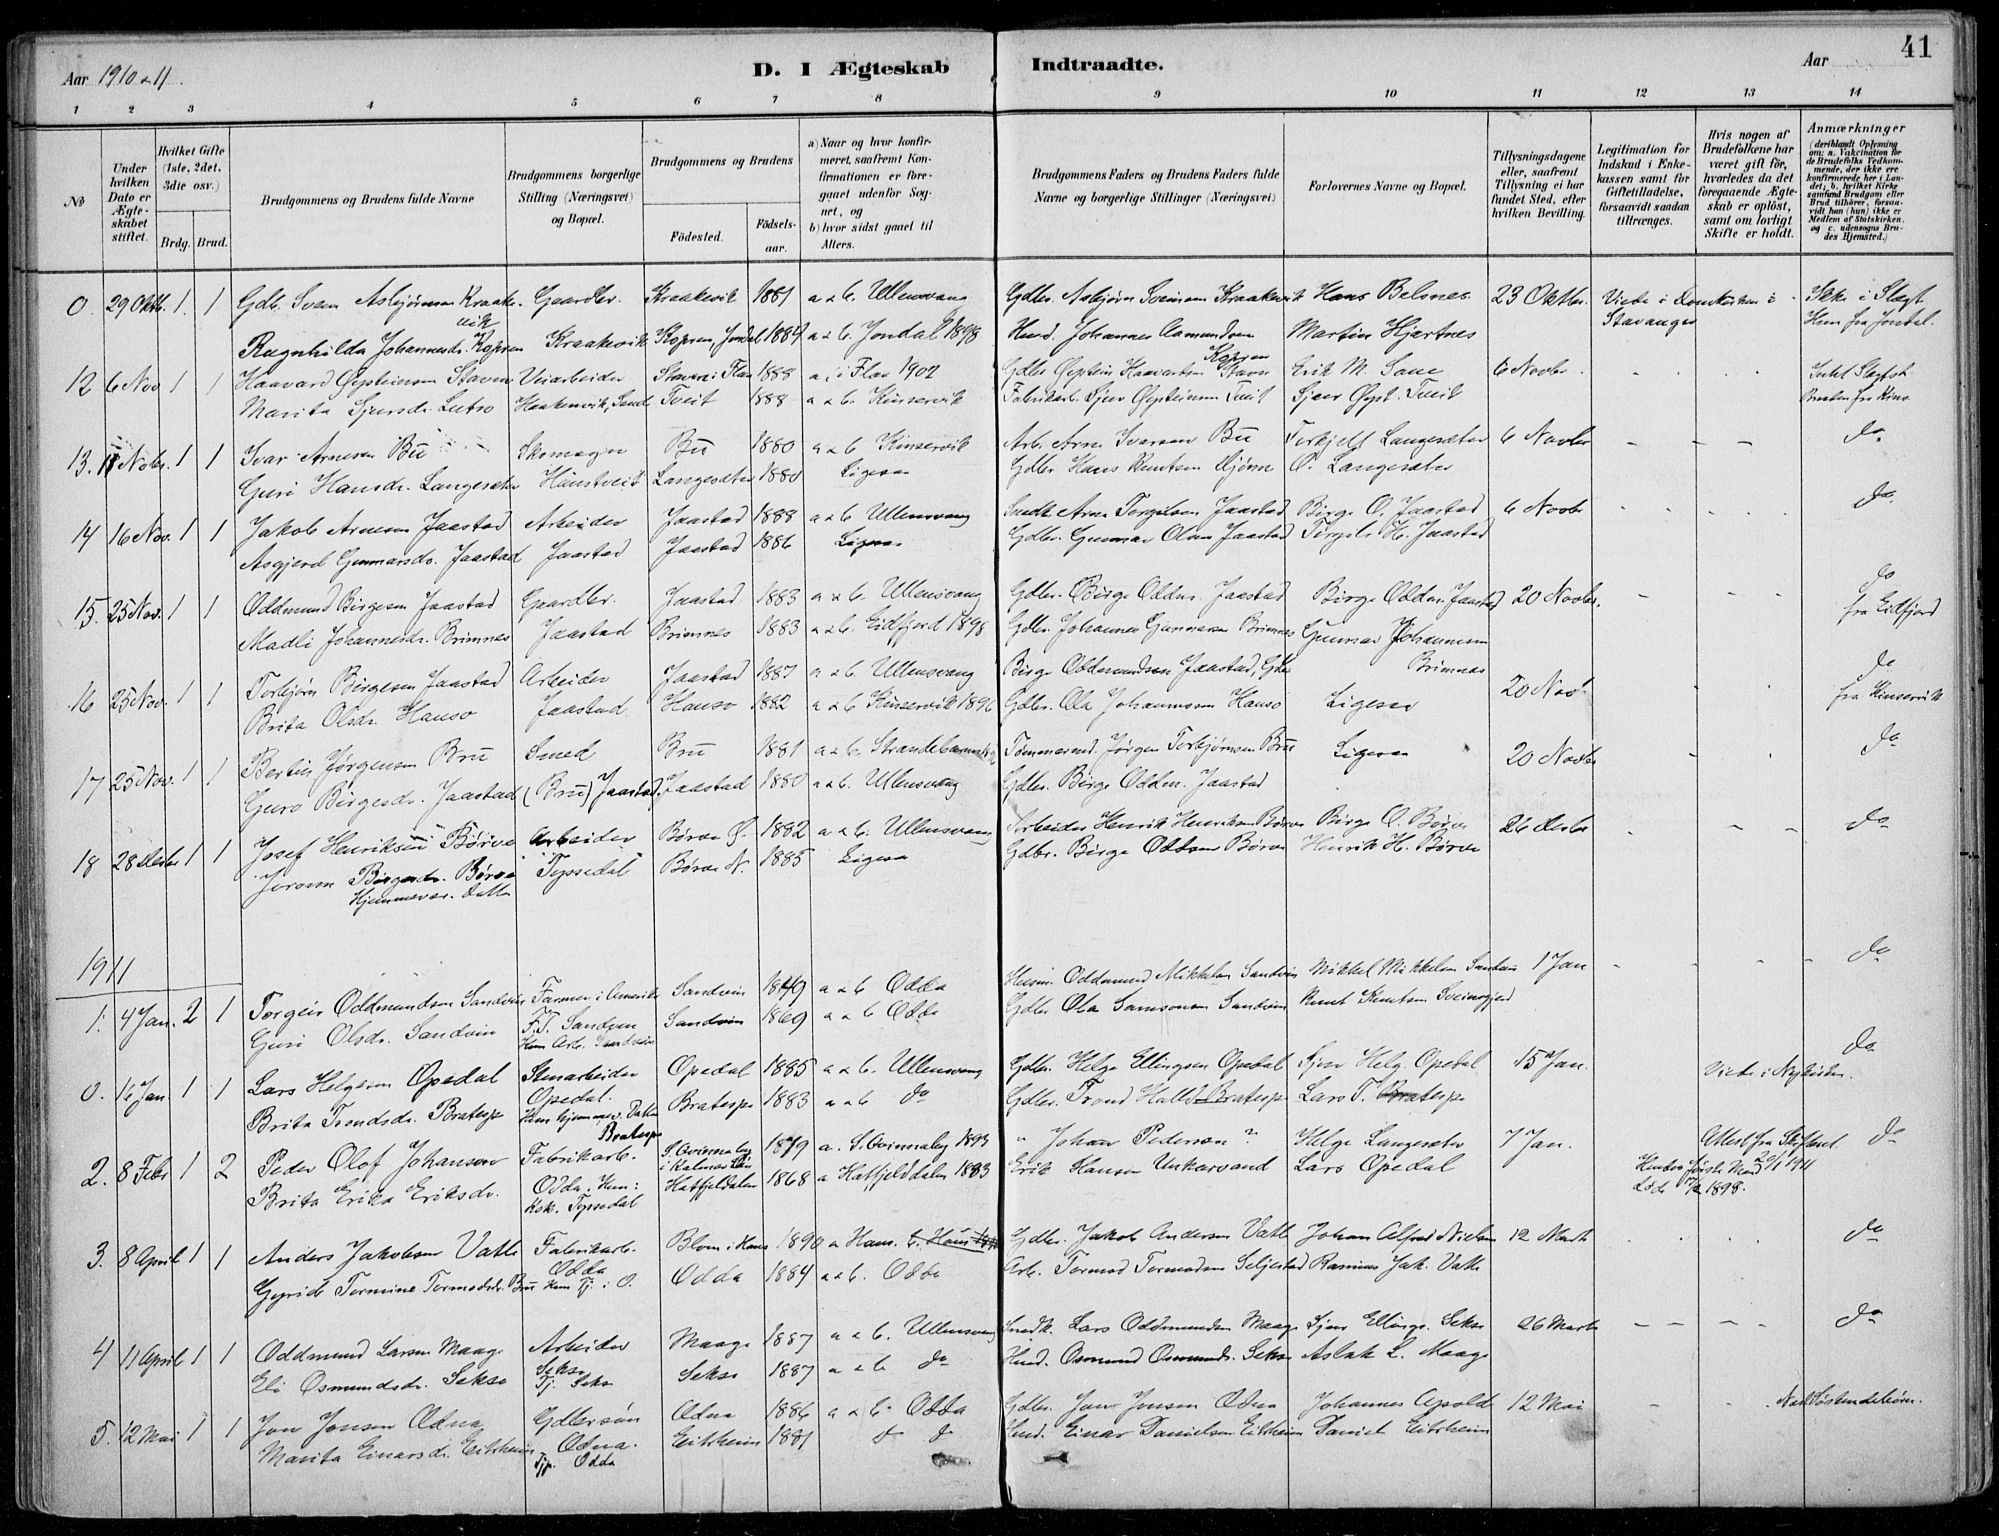 Aar 1910 & 11.
D. I Ægteskab Indtraadte.
Aar 41
1 2 3 4 5 6 7 8 9 10 11 12 13 14
No
Under hvilken Dato er Ægteskabet stiftet.
Hvilket Gifte (1ste, 2det, 3die osv.)
Brdg. Brud.
Brudgommens og Brudens fulde Navne
Brudgommens borgerlige Stilling (Næringsvei) og Bopæl.
Brudgommens og Brudens
Fødested.
Fødsels-aar.
a) Naar og hvor konfirmeret, saafremt Konfirmationen er foregaaet udenfor Sognet, og
b) hvor sidst gaaet til Alters.
Brudgommens Faders og Brudens Faders fulde Navne og borgerlige Stillinger (Næringsvei)
Forlovernes Navne og Bopæl.
Tillysningsdagene eller, saafremt Tillysning ei har fundet Sted, efter hvilken Bevilling.
Legitimation for Indskud i Enkekassen samt for Giftetilladelse, forsaavidt saadan tiltrænges.
Hvis nogen af Brudefolkene har været gift før, hvorledes da det foregaaende Ægteskab er opløst, samt om lovligt Skifte er holdt.
Anmærkninger (deriblandt Oplysning om: a. Vakcination for de Brudefolks Vedkommende, der ikke ere konfirmerede her i Landet; b. hvilket Kirkesamfund Brudgom eller Brud tilhører, forsaavidt han (hun) ikke er Medlem af Statskirken, og c. udensogns Brudes Hjemsted.)
0. 29 Oktb. 1. 1 Gdbr. Svein Asbjørnsen Kraakevik Gaardbr. Kraakevik 1881 a & b. Ullensvang Gdbr. Asbjørn Sveinsen Kraakevik Hans Belsnes 23 Oktbr. Viede i Domkirken i Stavanger Ikke i Slægt
Ragnhilda Johannesdr. Kopren Kraakevik Kopren, Jondal 1884 a & b. Jondal 1898 Husd. Johannes Aamundsen Kopren Martin Hjartnes Hun fra Jondal.
12 6 Nov 1 1 Haavard Øysteinsen Stavn Veiarbeider Stavn i Flaa 1888 a. i Flaa 1902 Gdbr. Øystein Haavardsen Stavn Erik M. Sane 6 Novbr.
Marita Sjursdr. Lutso Haakenvik, Sand Tveit 1888 a & b. Kinservik Fabrikarb. Sjur Øysteinsen Tveit Sjur Øyst. Tveit Bruden fra Kins.
13. 11 Nobr. 1 1 Ivar Arnesen Bu Skomager Bu 1880 a & b Kinservik Arb. Arne Ivarsen Bu Torkjell Langesæter 6 Novbr - - - do
Guri Hansdr. Langesæter Hanstveit Langesæter 1880 Ligesaa Gdbr Hans Knutsen Djønne O. Langesæter
14 16 Nov. 1 1 Jakob Arnesen Jaastad Arbeider Jaastad 1888 a & b Ullensvang Snedk. Arne Torgilsen Jaastad Birge O. Jaastad 6 Novbr do
Asgjerd Gunnarsdr. Jaastad Jaastad Jaastad 1886 Ligesaa Gdbr. Gunnar Olsen Jaastad Torgils H. Jaastad
15. 25 Nov. 1 1 Oddmund Birgesen Jaastad Gaardbr. Jaastad 1883 a & b. Ullensvang Gdbr. Birge Oddm. Jaastad Birge Oddm. Jaastad 20 Novbr. - - - do
Madli Johannesdr. Brimnes Jaastad Brimnes 1883 a & b. Eidfjord 1898 Gdbr. Johannes Gunnarsen Brimnes Gunnar Johannesen Brimnes fra Eidfjord
16 25 Nov. 1 1 Torbjørn Birgesen Jaastad Arbeider Jaastad 1887 a & b. Ullensvang Birge Oddmundsen Jaastad, Gdbr 20 Novb do
Brita Olsdr. Hauso Jaastad Hauso 1882 a & b Kinservik 1896 Gdbr. Ola Johannessen Hauso Ligesaa fra Kinservik
17 25 Nov. 1 1 Bertin Jørgensen Bru Smed Bru 1881 a & b. Strandebarm Tømmermd. Jørgen Torbjørnsen Bru Ligesaa 20 Novbr do
Guro Birgesdr. Jaastad (Bru) Jaastad. Jaastad 1880 a & b. Ullensvang Gdbr. Birge Oddm. Jaastad
18 28 Desbr 1 1 Josef Henriksen Børve Arbeider Børve Ø. 1882 a & b. Ullensvang Arbeider Henrik Henriksen Børve Birge O. Børve 26 Desbr - - - do
Jorunn Birgesdr. Børve Tyssedal Børve N. 1885 Ligesaa Gdbr. Birge Oddsen Børve Henrik H. Børve
Hjemmevær. Datter
1911
1. 4 Jan. 2 1 Torgeir Oddmundsen Sandvin Farmer i Amerika Sandvin 1849 a & b Odda Husm. Oddmund Mikkelsen Sandvin Mikkel Mikkelsen Sandvin 1 Jan - - - do
Guri Olsdr. Sandvin F.T. Sandven Sandvin 1869 a & b Odda Gdbr Ola Samsonsen Sandvin Knut Knutsen Sveinsgjerd
Hun Arb. Sandvin
0. 16 Jan. 1 1 Lars Helgesen Opedal Stenarbeider Opedal 1885 a & b. Ullensvang Gdbr. Helge Ellingsen Opedal Sjur Helg. Opedal 15 Jan. Viede i Nykirken. do
Brita Trondsdr. Bratespe Opedal. Bratespe 1883 a & b do Gdbr. Trond Halld. Bratespe Lars T. Bratespe
Hun hjemmev. Datter Bratespe
2. 8 Febr 1 2 Peder Olof Johanson Fabrikarb. S. Qvinnaby i Kalmar Län 1879 a. S. Qvinnaby 1893 " Johan Pederson ? Helge Langesæter 7 Jan. Attest fra Skifteret 20/1 1911 do
Brita Erika Eriksdr. Odda. Hun: Kok. Tyssedal Hatfjeldalen 1868 a Hatfjelddalen 1883 Erik Hansen Unkarvand Lars Opedal Hendes første Mand døde 1898.
3. 8 April 1 1 Anders Jakobsen Vatle Fabrikarb. Blom i Haus 1890 a Haus. Gdbr. Jakob Andersen Vatle Johan Alfred Nielsen 12 Marts do
Gyrid Tormine Tormodsdr. Bru Odda Hun Tj. i O. Odda 1884 a & b. Odda Arb. Tormod Tormodsen Seljestad Rasmus Jak. Vatle
4 11 April 1 1 Oddmund Larsen Maage Arbeider Maage 1887 a & b. Ullensvang Snedk. Lars Oddmundsen Maage Sjur Elling. Sekse 26 Marts - - - - do
Eli Osmundsdr. Sekse Sekse Tj. Sekse Sekse 1887 a & b do Husd. Osmund Osmunds. Sekse Aslak L. Maage
5. 12 Mai 1 1 Jon Jonsen Ædna Gdbrsøn Ædna 1886 a & b. Odda Gdbr. Jon Jonsen Ædna Johannes Apold 12 Mai - - . Næstsøskendebørn.
Marita Einarsdr. Eitrheim Ædna. Tjp. Odda Eitrheim 1881 do do Husd. Einar Danielsen Eitrheim Daniel Eitrheim